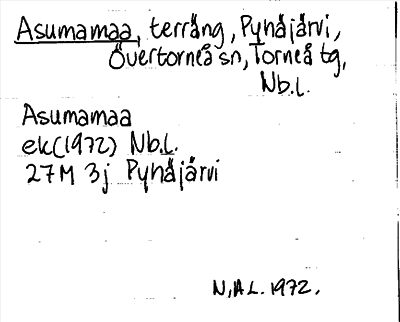 Asumamaa, terräng, Pyhäjärvi,
Övertorneå sn, Torneå tg,
Nb.l.
Asumamaa
ek(1972) Nb.l.
27M 3j Pyhäjärvi
N,Al. 1972.